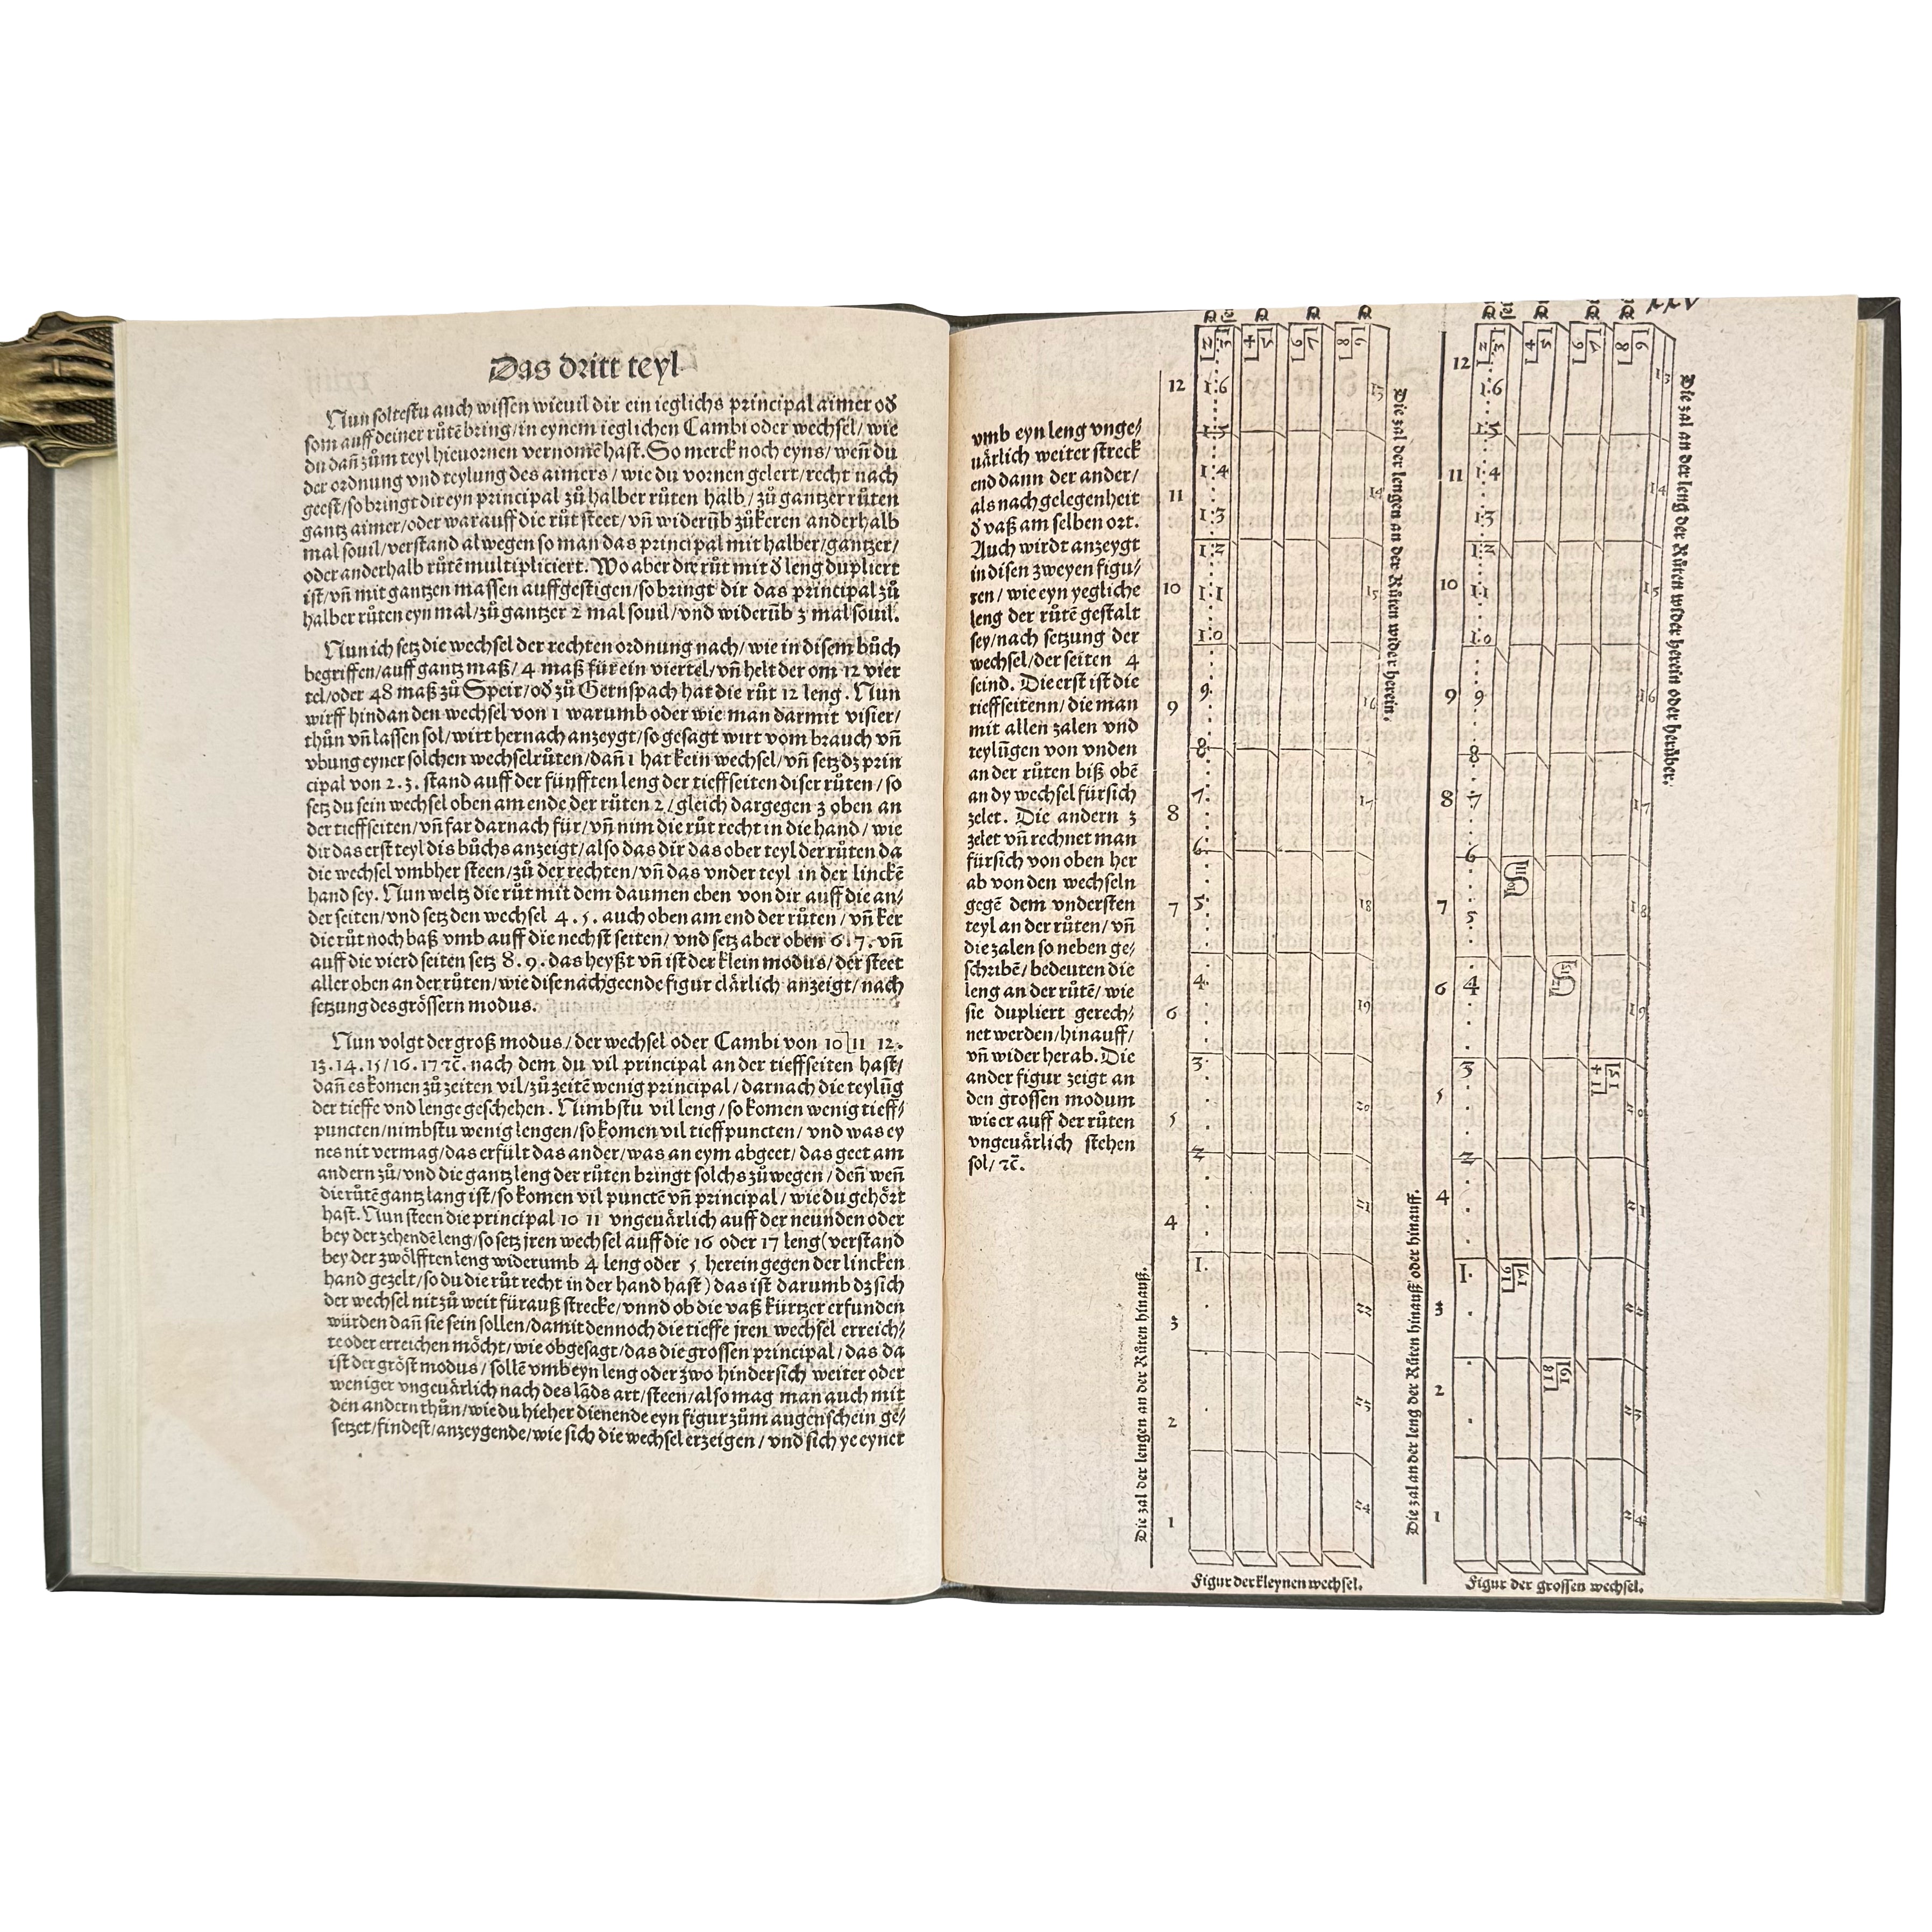 Das dritt teyl
Nun soltestu auch wissen wieuil dir ein ieglichs principal aimer oď
som auff deiner růtē bring/in eynem ieglichen Cambi oder wechsel/wie
du dañ zům teyl hieuornen vernomē hast. So merck noch eyns/weñ du
der ordnung vnd teylung des aimers/wie du vornen gelert/recht nach
geest/so bringt dir eyn principal zů halber růten halb/zů gantzer růten
gantz aimer/oder war auff die růt steet/vñ widerũb zůkeren anderhalb
mal souil/verstand alwegen so man das principal mit halber/gantzer/
oder anderhalb růtē multipliciert. Wo aber die růt mit ď leng dupliert
ist/vñ mit gantzen massen auffgestigen/so bringt dir das principal zů
halber růten eyn mal/zů gantzer 2 mal souil/vnd widerũb 3 mal souil.
Nun ich setz die wechsel der rechten ordnung nach/wie in disem bůch
begriffen/auff gantz maß/4 maß für ein viertel/vñ helt der om 12 vier
tel/oder 48 maß zů Speir/oď zů Gernspach hat die růt 12 leng. Nun
wirff hindan den wechsel von 1 warumb oder wie man darmit visier/
thůn vñ lassen sol/wirt hernach anzeygt/so gesagt wirt vom brauch vñ
vbung eyner solchen wechselrůten/dañ 1 hat kein wechsel/vñ setz dz prin
cipal von 2.3. stand auff der fünfften leng der tieffseiten diser růten/so
setz du sein wechsel oben am ende der růten 2/gleich dargegen 3 oben an
der tieffseiten/vñ far darnach für/vñ nim die růt recht in die hand/wie
dir das erst teyl dis bůchs anzeigt/also das dir das ober teyl der růten da
die wechsel vmbher steen/zů der rechten/vñ das vnder teyl in der linckē
hand sey. Nun weltz die růt mit dem daumen eben von dir auff die an/
der seiten/vnd setz den wechsel 4.5. auch oben am end der růten/vñ ker
die růt noch baß vmb auff die nechst seiten/vnd setz aber oben 6.7. vñ
auff die vierd seiten setz 8.9. das heyßt vñ ist der klein modus/der steet
aller oben an der růten/wie dise nachgeende figur clärlich anzeigt/nach
setzung des grössern modus.
Nun volgt der groß modus/der wechsel oder Cambi von 10 11 12.
13.14.15/16.17 ꝛc̄. nach dem du vil principal an der tieffseiten hast/
dañ es komen zů zeiten vil/zů zeitē wenig principal/darnach die teylũg
der tieffe vnd lenge geschehen. Nimbstu vil leng/so komen wenig tieff/
puncten/nimbstu wenig lengen/so komen vil tieffpuncten/vnd was ey
nes nit vermag/das erfült das ander/was an eym abgeet/das geet am
andern zů/vnd die gantz leng der růten bringt solchs zů wegen/deñ weñ
die růtē gantz lang ist/so komen vil punctē vñ principal/wie du gehört
hast. Nun steen die principal 10 11 vngeuärlich auff der neunden oder
bey der zehendē leng/so setz jren wechsel auff die 16 oder 17 leng (verstand
bey der zwölfften leng widerumb 4 leng oder 5 herein gegen der lincken
hand gezelt/so du die růt recht in der hand hast) das ist darumb dz sich
der wechsel nit zů weit fürauß strecke/vnnd ob die vaß kürtzer erfunden
würden dañ sie sein sollen/damit dennoch die tieffe jren wechsel erreich/
te oder erreichen möcht/wie obgesagt/das die grossen principal/das da
ist der gröst modus/sollē vmb eyn leng oder zwo hindersich weiter oder
weniger vngeuärlich nach des lāds art/steen/also mag man auch mit
den andern thůn/wie du hieher dienende eyn figur zům augenschein ge/
setzet/findest/anzeygende/wie sich die wechsel erzeigen/vnd sich ye eyner
xxv
vmb eyn leng vnge/
uärlich weiter streck
end dann der ander/
als nach gelegenheit
ď vaß am selben ort.
Auch wirdt anzeygt
in disen zweyen figu/
ren/wie eyn yegliche
leng der růtē gestalt
sey/nach setzung der
wechsel/der seiten 4
seind. Die erst ist die
tieffseitenn/die man
mit allen zalen vnd
teylũgen von vnden
an der růten biß obē
an dy wechsel fürsich
zelet. Die andern 3
zelet vñ rechnet man
fürsich von oben her
ab von den wechseln
gegē dem vndersten
teyl an der růten/vñ
die zalen so neben ge/
schribē/bedeuten die
leng an der růtē/wie
sie dupliert gerech/
net werden/hinauff/
vñ wider herab. Die
ander figur zeigt an
den grossen modum
wie er auff der růten
vngeuärlich stehen
sol/ꝛc̄.
Die zal der lengen an der Růten hinauß.
12
11
10
9
8
7
6
5
4
3
2
1
2 3
4 5
6 7
8 9
16
15
14
13
12
11
10
9
8
7
6
5
4
3
2
1
13
14
15
16
17
18
19
20
21
22
23
24
Die zal der lengen an der Růten wider herein.
Figur der kleynen wechsel.
Die zal an der leng der Růten hinauß oder hinauff.
12
11
10
9
8
7
6
5
4
3
2
1
2 3
4 5
6 7
8 9
16
15
14
13
12
11
10
9
8
7
6
5
4
3
2
1
10 11
12 13
14 15
16 17
18 19
13
14
15
16
17
18
19
20
21
22
23
24
Die zal an der leng der Růten wider herein oder herüber.
Figur der grossen wechsel.